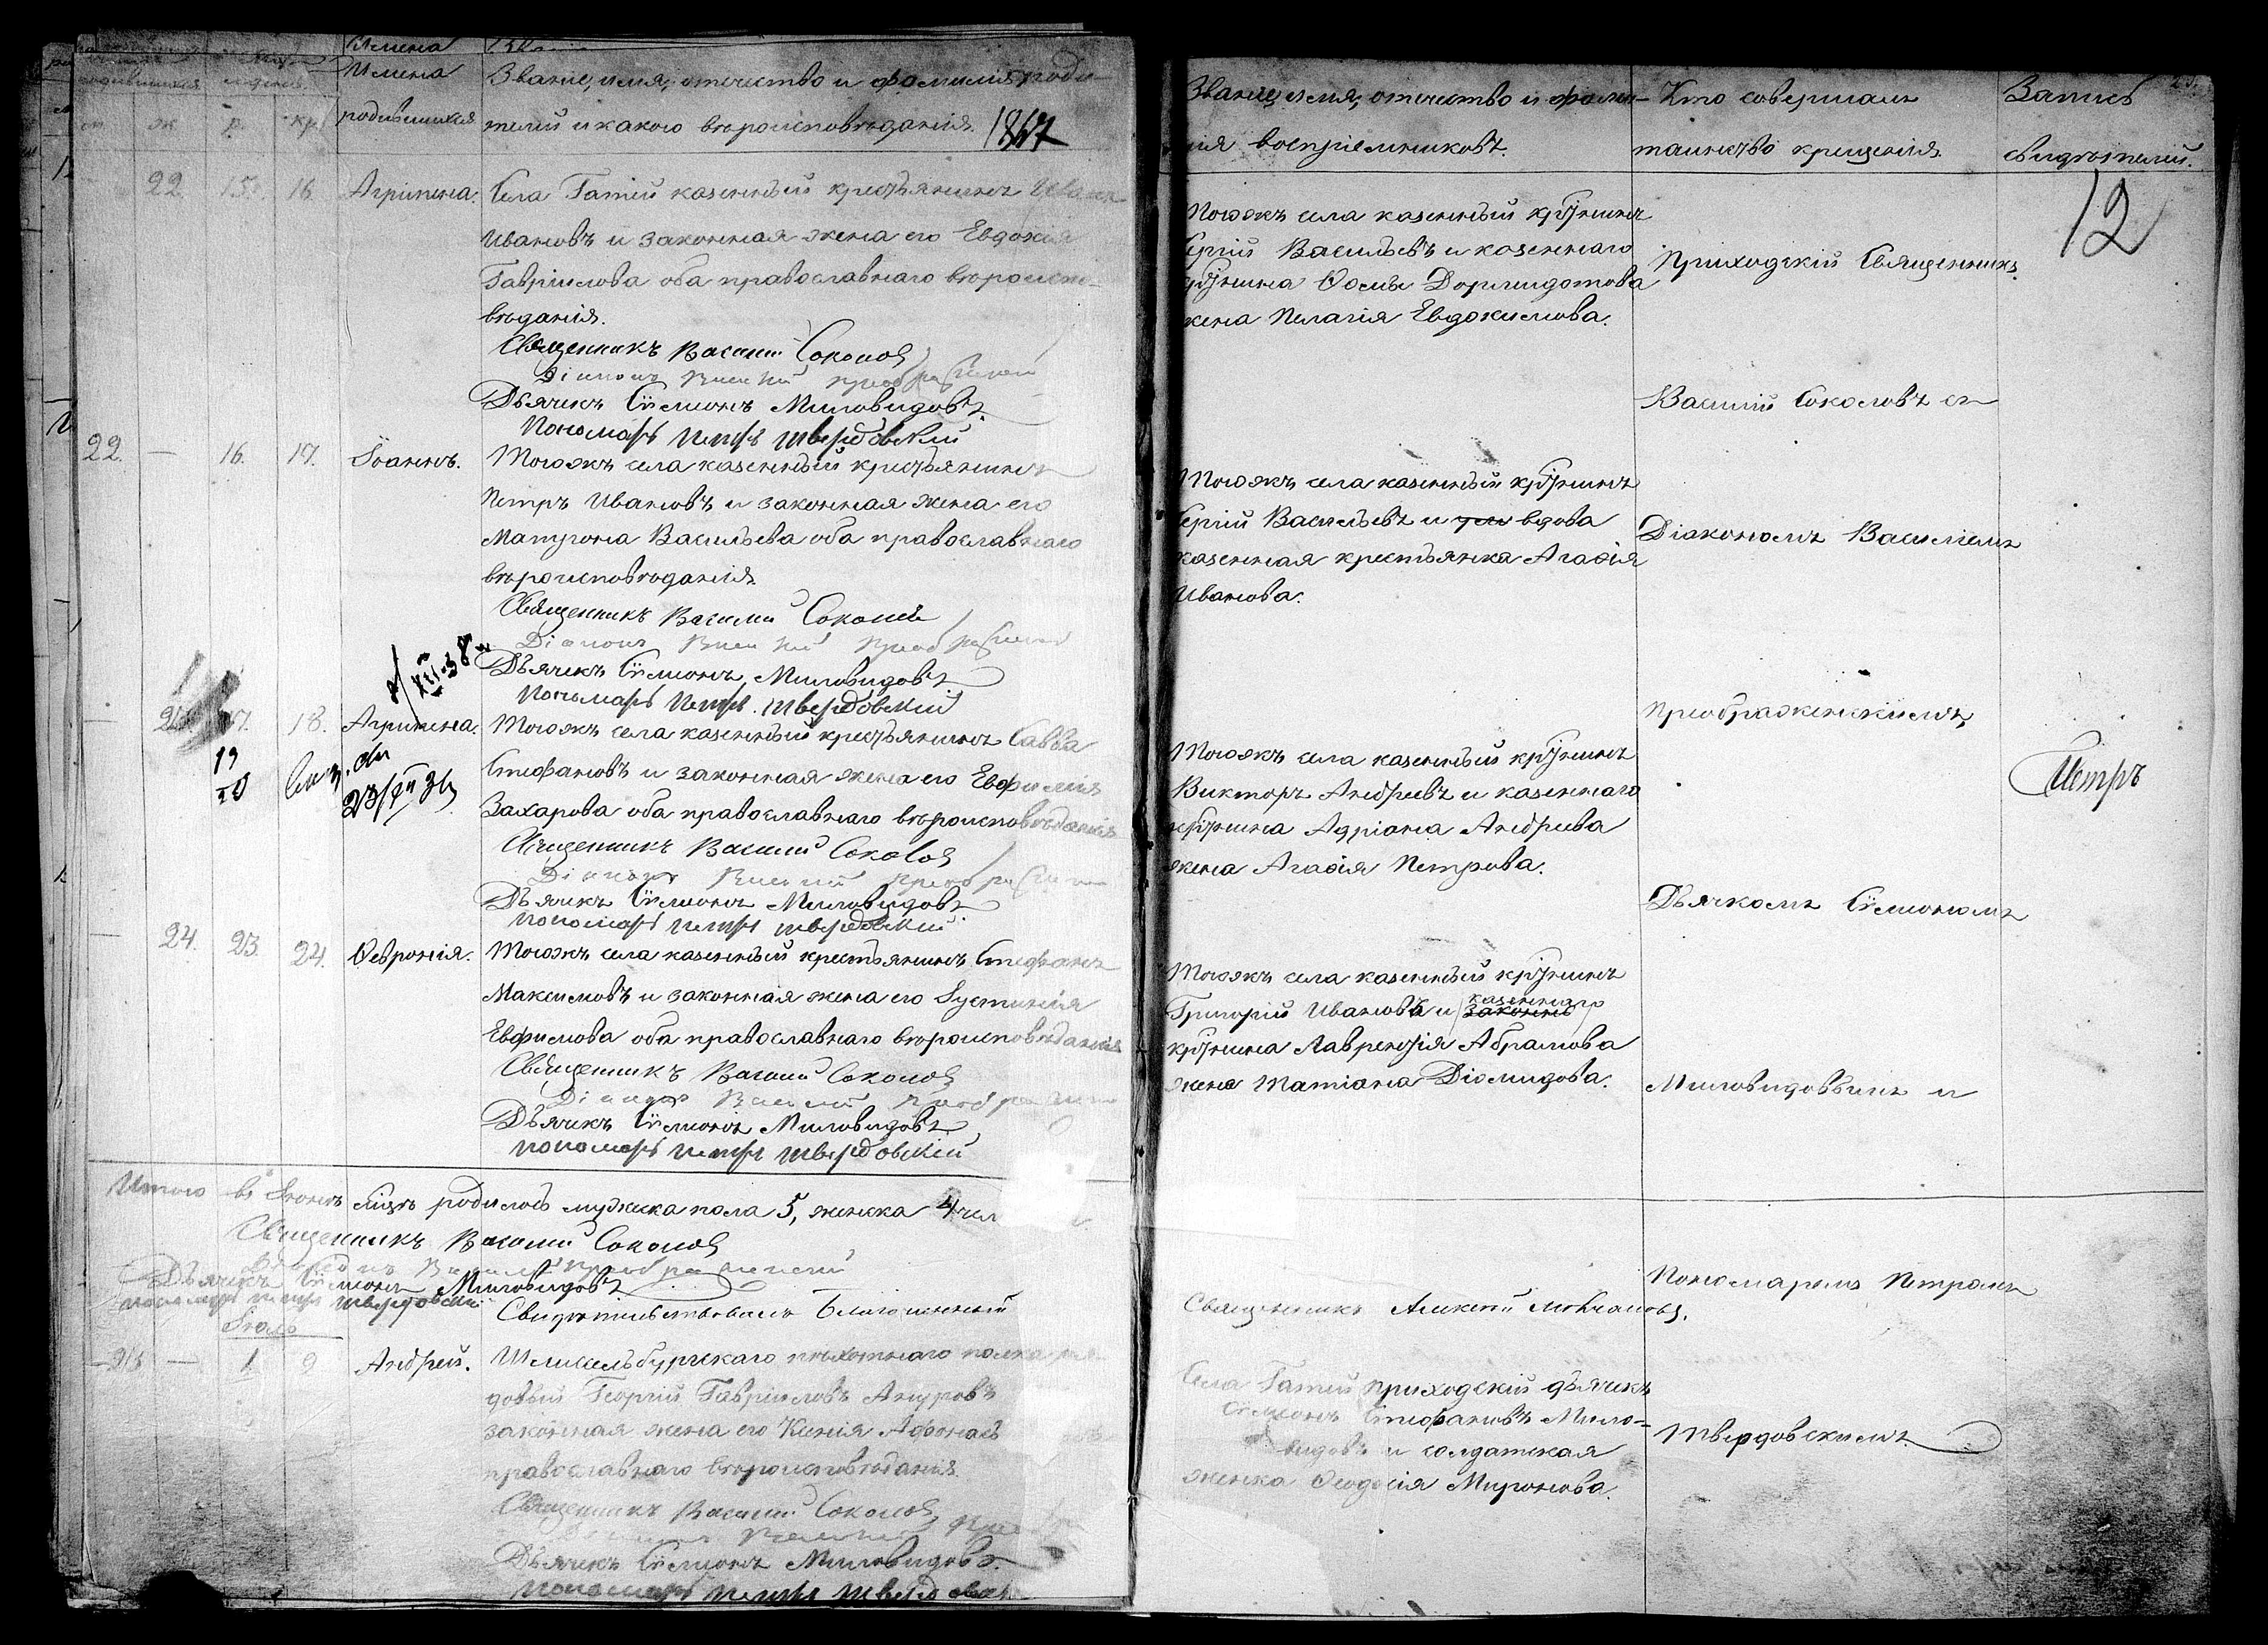 Имена
Имена
родившихся.
Званіе, имя, отчество и фамилія роди-
телей и какого вѣроисповѣданія.
1867
22. 15. 16. Агрипена.
Села Гатей казенный крестьянинъ Иванъ
Ивановъ и законная жена его Евдокія
Гавріилова оба православнаго вѣроиспо-
вѣданія.
Священникъ Василій Соколовъ
Діаконъ Василій Преображенскій
Дьячекъ Сѵмеонъ Миловидовъ.
Пономарь Петръ Твердовскій
22. — 16. 17. Іоаннъ.
Тогожъ села казенный крестьянинъ
Петръ Ивановъ и законная жена его
Матрона Васильева оба православнаго
вѣроисповѣданія.
Священникъ Василій Соколовъ
Діаконъ Василій Преображенскій
Дьячекъ Сѵмеонъ Миловидовъ
Пономарь Петръ Твердовскій
17. 18. Агрипена.
Тогожъ села казенный крестьянинъ Савва
Стефановъ и законная жена его Евфимія
Захарова оба православнаго вѣроисповѣданія
Священникъ Василій Соколовъ
Діаконъ Василій Преображенскій
Дьячекъ Сѵмеонъ Миловидовъ
Пономарь Петръ Твердовскій
24. 23. 24. Ѳевронія.
Тогожъ села казенный крестьянинъ Стефанъ
Максимовъ и законная жена его Іустинія
Евфимова оба православнаго вѣроисповѣданія
Священникъ Василій Соколовъ
Діаконъ Василій Преображенскій
Дьячекъ Сѵмеонъ Миловидовъ
Пономарь Петръ Твердовскій
Итого въ Іюнѣ мцѣ родилось мужска пола 5, женска 4 чел
Священникъ Василій Соколовъ
Діаконъ Василій Преображенскій
Дьячекъ Сѵмеонъ Миловидовъ
Пономарь Петръ Твердовскій
Свидѣтельствовалъ Благочинный
Іюль
— 1 9 Андрей.
Шлиссельбургскаго пѣхотнаго полка ря-
довый Георгій Гавріиловъ
законная жена его Ксенія
православнаго вѣроисповѣданія.
Священникъ Василій Соколовъ
Дьячекъ Сѵмеонъ Миловидовъ.
Пономарь Петръ
Званіе, имя, отчество и фами-
лія воспріемниковъ.
Кто совершалъ
таинство крещенія.
Запись
свидѣтелей.
12
Тогожъ села казенный крᵗьянинъ
Сергій Васильевъ и казеннаго
крᵗьянина Ѳомы Дормидотова
жена Пелагія Евдокимова.
Тогожъ села казенный крᵗьянинъ
Сергій Васильевъ и вдова
казенная крестьянка Агаѳія
Иванова.
Тогожъ села казенный крᵗьянинъ
Викторъ Андреевъ и казеннаго
крᵗьянина Адріана Андреева
жена Агаѳія Петрова.
Тогожъ села казенный крᵗьянинъ
казеннаго
Григорій Ивановъ и законнъ
крᵗьянина Лаврентія Абрамова
жена Татіана Діомидова.
Священникъ Алексѣй
Села Гатей приходскій дьячекъ
Сѵмеонъ Стефановъ Мило-
видовъ и солдатская
женка Ѳеодосія Миронова.
Приходскій Священникъ
Василій Соколовъ съ
Діакономъ Василіемъ
Преображенскимъ,
Дьячкомъ Сѵмеономъ
Миловидовымъ и
Пономаремъ Петромъ
Твердовскимъ.
Петръ